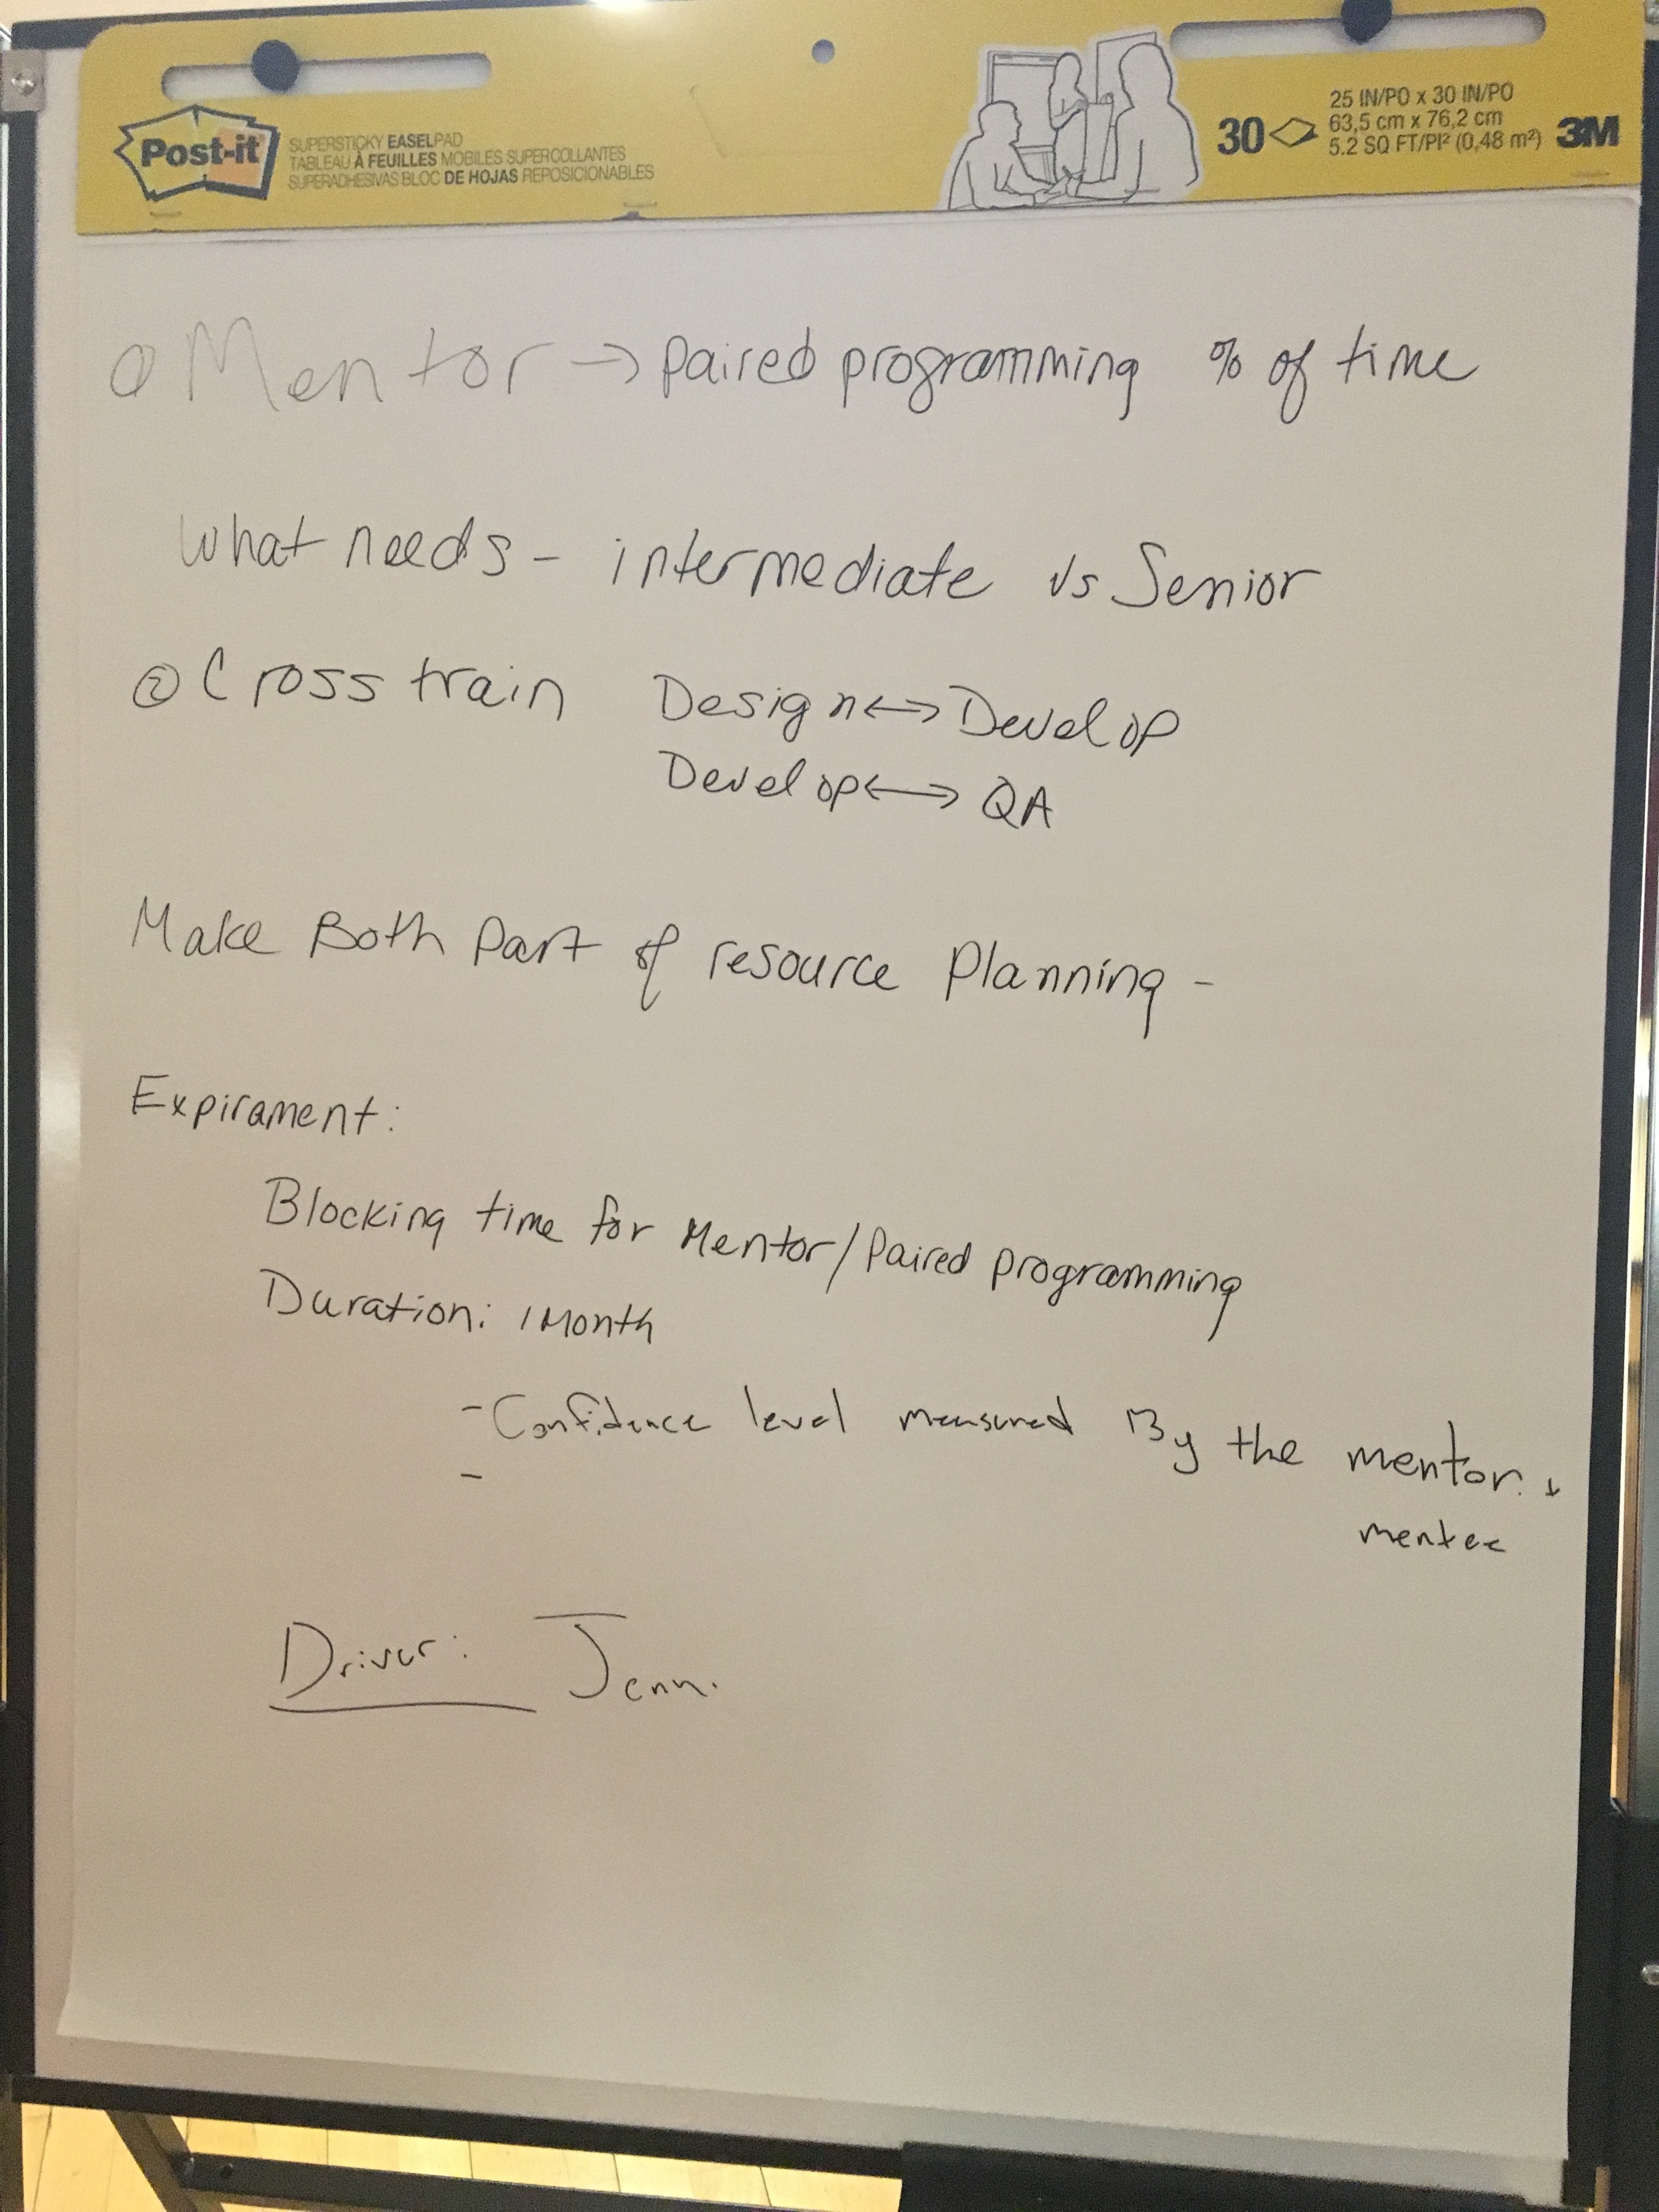 Post-it
SUPERSTICKY EASELPAD
TABLEAU À FEUILLES MOBILES SUPERCOLLANTES
SUPERADHESIVAS BLOC DE HOJAS REPOSICIONABLES
30
25 IN/PO x 30 IN/PO
63,5 cm x 76,2 cm
5.2 SQ FT/PI² (0,48 m²)
3M
① Mentor → paired programming % of time
What needs - intermediate vs Senior
② Cross train Design ↔ Develop
Develop ↔ QA
Make Both Part of resource Planning -
Expirament:
Blocking time for Mentor/Paired programming
Duration: 1 Month
- Confidence level measured By the mentor. +
-
mentee
Driver: Jenn.